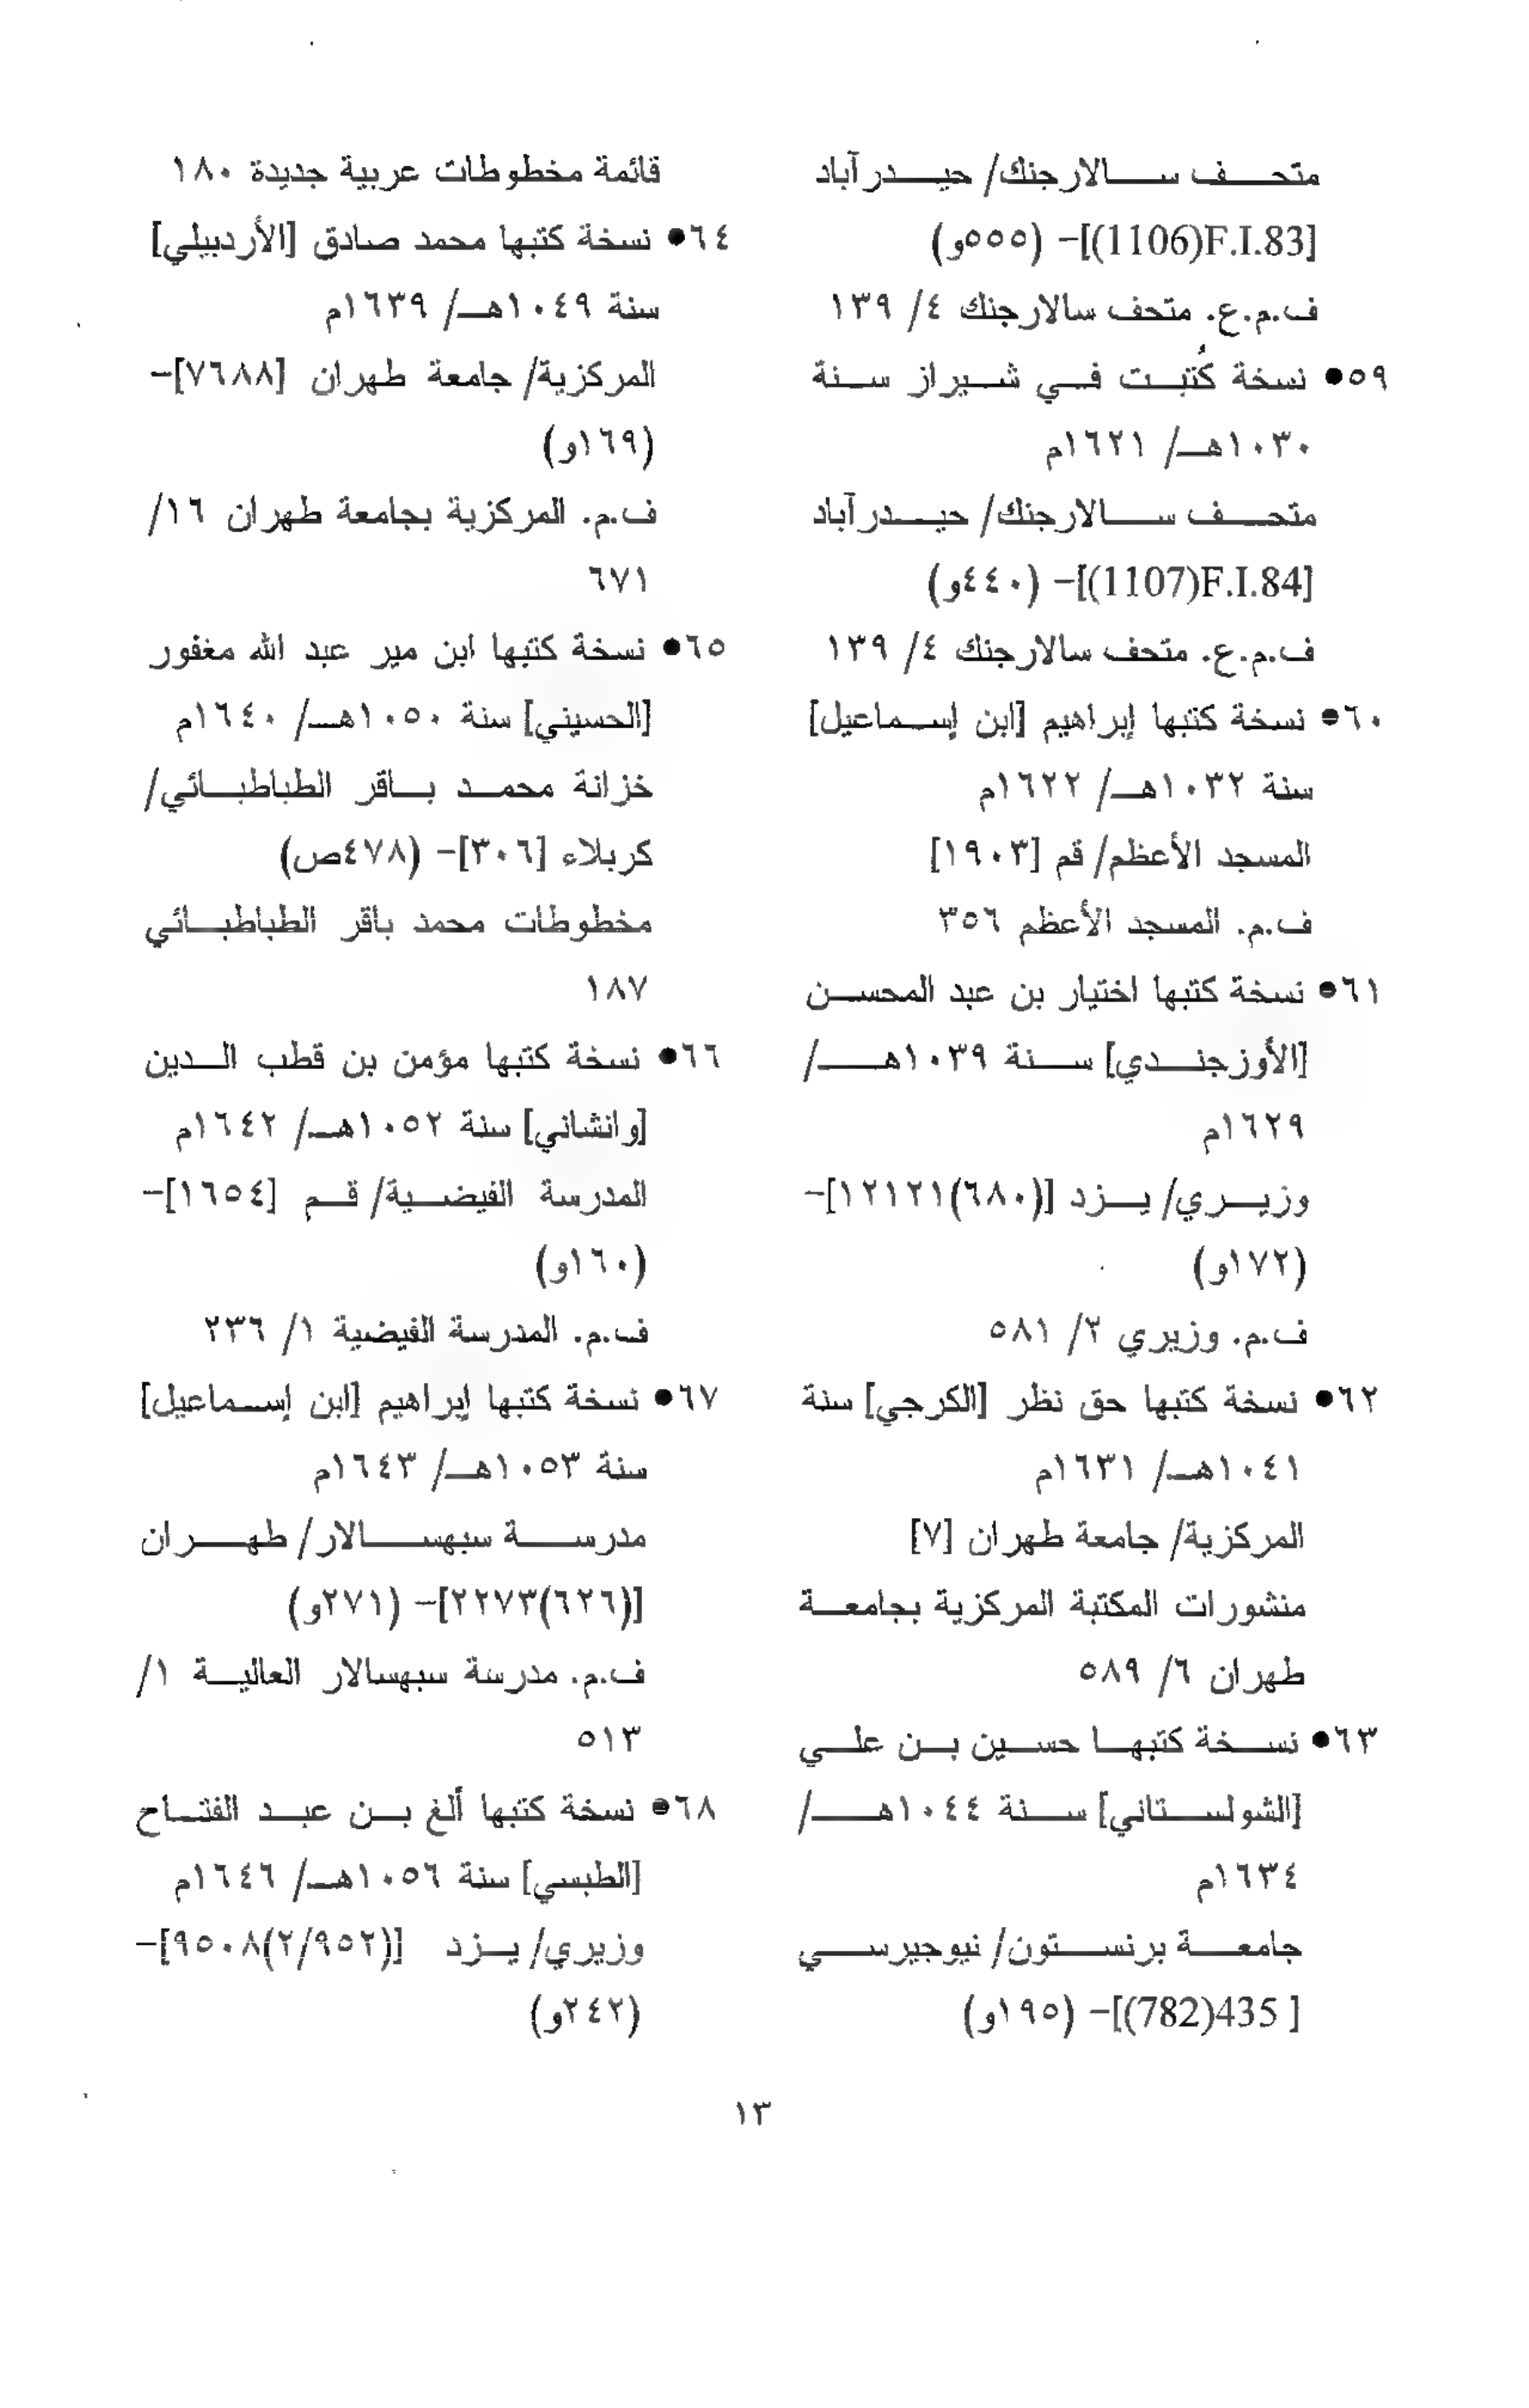 متحف سالارجنك/ حيدرآباد
[F.I.83(1106)]- (٥٥٥و)
ف.م.ع. متحف سالارجنك ٤/ ١٣٩
٥٩● نسخة كُتبت في شيراز سنة
١٠٣٠هـ/ ١٦٢١م
متحف سالارجنك/ حيدرآباد
[F.I.84(1107)]- (٤٤٠و)
ف.م.ع. متحف سالارجنك ٤/ ١٣٩
٦٠● نسخة كتبها إبراهيم [ابن إسماعيل]
سنة ١٠٣٢هـ/ ١٦٢٢م
المسجد الأعظم/ قم [١٩٠٣]
ف.م. المسجد الأعظم ٣٥٦
٦١● نسخة كتبها اختيار بن عبد المحسن
[الأوزجندي] سنة ١٠٣٩هـ/
١٦٢٩م
وزيري/ يزد [(٦٨٠)١٢١٢١]-
(١٧٢و)
ف.م. وزيري ٢/ ٥٨١
٦٢● نسخة كتبها حق نظر [الكرجي] سنة
١٠٤١هـ/ ١٦٣١م
المركزية/ جامعة طهران [٧]
منشورات المكتبة المركزية بجامعة
طهران ٦/ ٥٨٩
٦٣● نسخة كتبها حسين بن علي
[الشولستاني] سنة ١٠٤٤هـ/
١٦٣٤م
جامعة برنستون/ نيوجيرسي
[ 435(782)]- (١٩٥و)
قائمة مخطوطات عربية جديدة ١٨٠
٦٤● نسخة كتبها محمد صادق [الأردبيلي]
سنة ١٠٤٩هـ/ ١٦٣٩م
المركزية/ جامعة طهران [٧٦٨٨]-
(١٦٩و)
ف.م. المركزية بجامعة طهران ١٦/
٦٧١
٦٥● نسخة كتبها ابن مير عبد الله مغفور
[الحسيني] سنة ١٠٥٠هـ/ ١٦٤٠م
خزانة محمد باقر الطباطبائي/
كربلاء [٣٠٦]- (٤٧٨ص)
مخطوطات محمد باقر الطباطبائي
١٨٧
٦٦● نسخة كتبها مؤمن بن قطب الدين
[وانشاني] سنة ١٠٥٢هـ/ ١٦٤٢م
المدرسة الفيضية/ قم [١٦٥٤]-
(١٦٠و)
ف.م. المدرسة الفيضية ١/ ٢٣٦
٦٧● نسخة كتبها إبراهيم [ابن إسماعيل]
سنة ١٠٥٣هـ/ ١٦٤٣م
مدرسة سبهسالار/ طهران
[(٦٢٦)٢٢٧٣]- (٢٧١و)
ف.م. مدرسة سبهسالار العالية ١/
٥١٣
٦٨● نسخة كتبها ألغ بن عبد الفتاح
[الطبسي] سنة ١٠٥٦هـ/ ١٦٤٦م
وزيري/ يزد [(٢/٩٥٢)٩٥٠٨]-
(٢٤٢و)
١٣